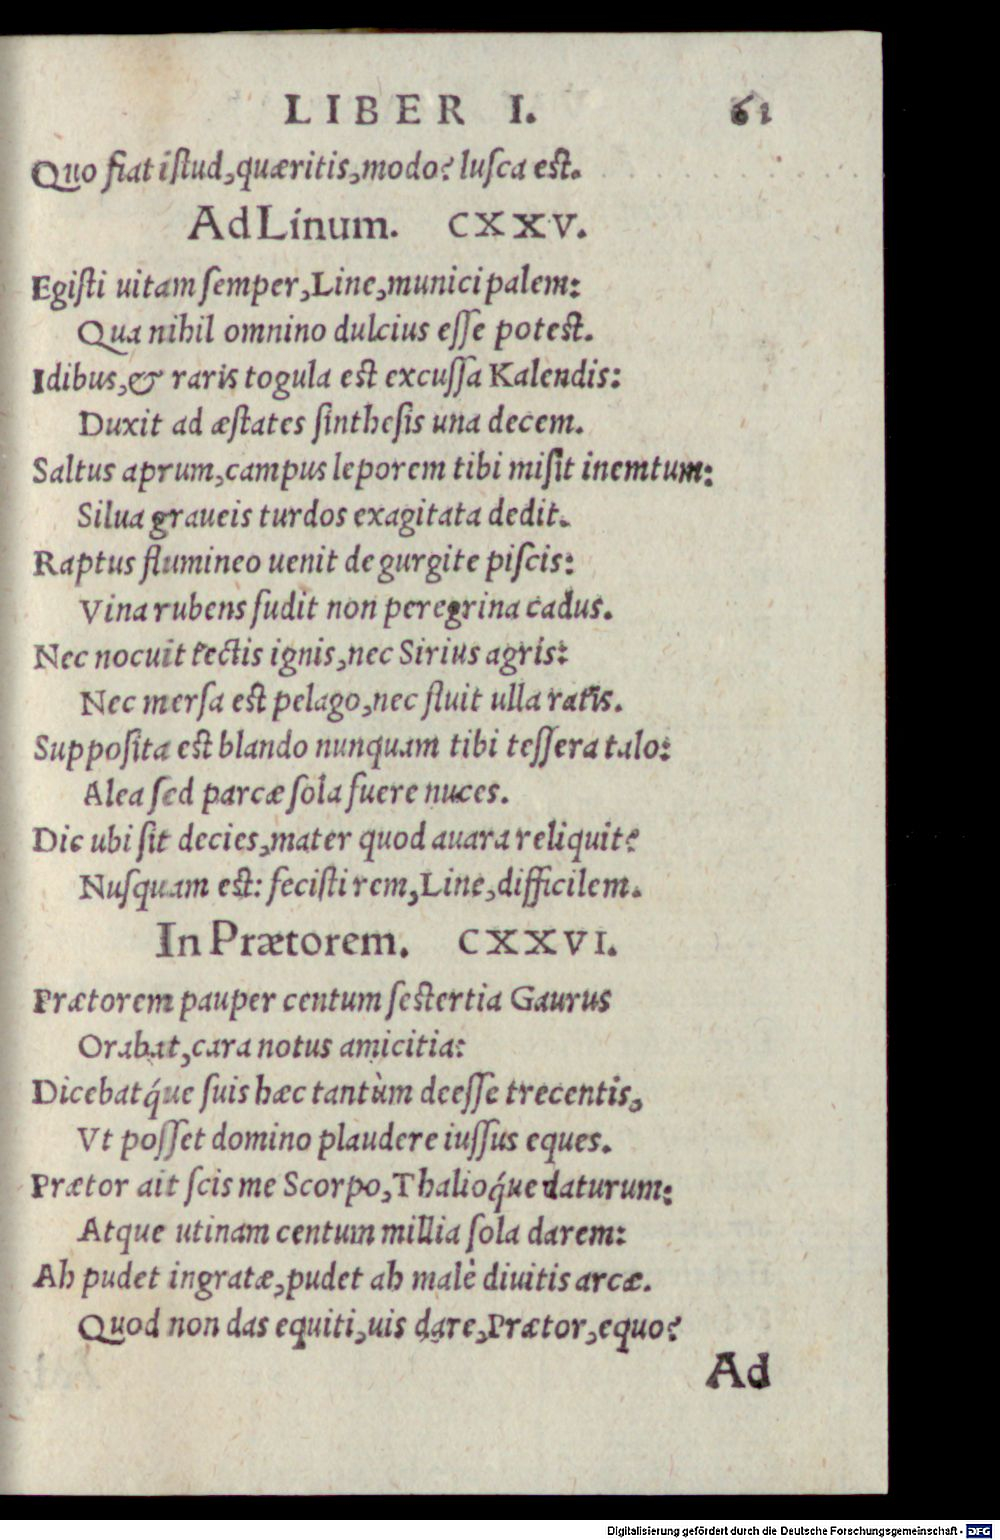 LIBER I. 61
Quo fiat iſtud, quæritis, modo? luſca eſt.
Ad Linum. CXXV.
Egiſti uitam ſemper, Line, municipalem:
Qua nihil omnino dulcius eſſe poteſt.
Idibus, & raris togula eſt excuſſa Kalendis:
Duxit ad æſtates ſintheſis una decem.
Saltus aprum, campus leporem tibi miſit inemtum:
Silua graueis turdos exagitata dedit.
Raptus flumineo uenit de gurgite piſcis:
Vina rubens fudit non peregrina cadus.
Nec nocuit tectis ignis, nec Sirius agris:
Nec merſa eſt pelago, nec fluit ulla ratis.
Suppoſita eſt blando nunquam tibi teſſera talo:
Alea ſed parcæ ſola fuere nuces.
Dic ubi ſit decies, mater quod auara reliquit?
Nuſquam eſt: feciſti rem, Line, difficilem.
In Prætorem. CXXVI.
Prætorem pauper centum ſeſtertia Gaurus
Orabat, cara notus amicitia:
Dicebatq́ue ſuis hæc tantùm deeſſe trecentis,
Vt poſſet domino plaudere iuſſus eques.
Prætor ait ſcis me Scorpo, Thalioq́ue daturum:
Atque utinam centum millia ſola darem:
Ah pudet ingratæ, pudet ah malè diuitis arcæ.
Quod non das equiti, uis dare, Prætor, equo?
Ad
Digitalisierung gefördert durch die Deutsche Forschungsgemeinschaft - DFG